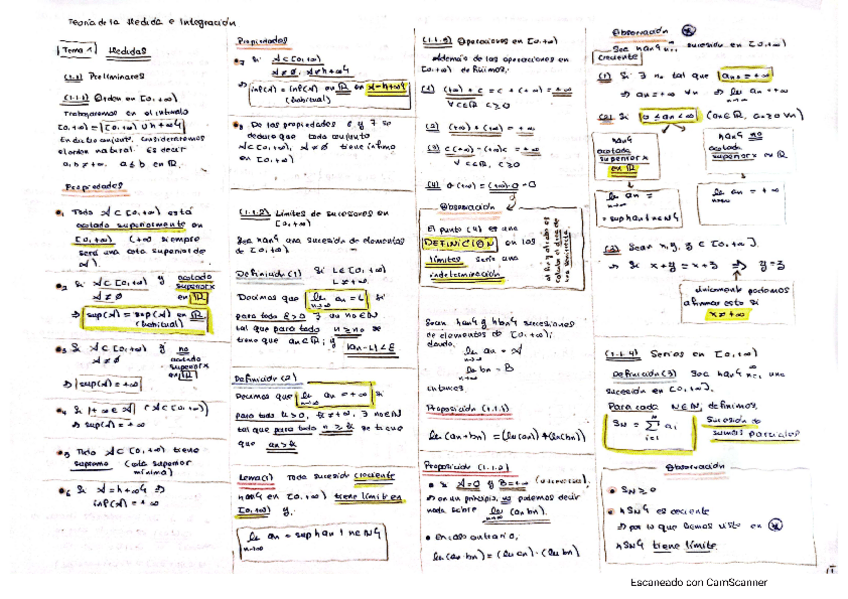 Teoría de la Medida e Integración
Tema 1 Medidas
(1.1) Preliminares
(1.1.1) Orden en [0,+∞]
Trabajaremos en el intervalo
[0,+∞] = [0,+∞) ∪ {+∞}
En dicho conjunto, consideraremos
el orden natural. Es decir
a,b ≠ +∞. a ≤ b en ℝ.
Propiedades
•1 Todo A ⊂ [0,+∞] está
acotado superiormente en
[0,+∞] (+∞ siempre
será una cota superior de
A)
•2 Si A ⊂ [0,+∞) y acotado
A ≠ ∅ superior x
en ℝ
⇒ sup(A) = sup(A) en ℝ
(habitual)
•3 Si A ⊂ [0,+∞) y no
A ≠ ∅ acotado
superior x
en ℝ
⇒ sup(A) = +∞
•4 Si {+∞ ∈ A} (A ⊂ [0,+∞])
⇒ sup(A) = +∞
•5 Todo A ⊂ [0,+∞] tiene
supremo (cota superior
mínima)
•6 Si A = {+∞} ⇒
inf(A) = +∞
Propiedades
•7 Si A ⊂ [0,+∞]
A ≠ ∅, A ≠ {+∞}
⇒ inf(A) = inf(A) en ℝ en A-{+∞}
(habitual)
•8 De las propiedades 6 y 7 se
deduce que todo conjunto
A ⊂ [0,+∞], A ≠ ∅ tiene ínfimo
en [0,+∞]
(1.1.2) Límites de sucesiones en
[0,+∞]
Sea {an} una sucesión de elementos
de [0,+∞].
Definición (1) Si L ∈ [0,+∞]
L ≠ +∞.
Decimos que lim an = L si
n→∞
para todo ε > 0 ∃ no ∈ N
tal que para todo n ≥ no se
tiene que an ∈ ℝ; y |an - L| < ε
Definición (2)
Decimos que lim an = +∞ si
n→∞
para todo k > 0, k ≠ +∞, ∃ no ∈ N
tal que para todo n ≥ se tiene
que an > k
Lema (1) Toda sucesión creciente
{an} en [0,+∞] tiene límite en
[0,+∞] y
lim an = sup{an | n ∈ N}
n→∞
(1.1.3) Operaciones en [0,+∞]
Además de las operaciones en
[0,+∞) definimos,
(1) (+∞) + c = c + (+∞) = +∞
∀ c ∈ ℝ, c ≥ 0
(2) (+∞) + (+∞) = +∞
(3) c(+∞) = (+∞)c = +∞
∀ c ∈ ℝ, c > 0
(4) 0·(+∞) = (+∞)·0 = 0
Observación
El punto (4) es una
DEFINICIÓN en los
límites sería una
indeterminación
Sean {an} y {bn} sucesiones
de elementos de [0,+∞];
dando,
lim an = A
n→∞
lim bn = B
n→∞
entonces
Proposición (1.1.1)
lim (an + bn) = (lim an) + (lim bn)
Proposición (1.1.2)
• Si A = 0 y B = +∞
⇒ en un principio, no podemos decir
nada sobre lim (an bn).
n→∞
• En caso contrario,
lim (an·bn) = (lim an)·(lim bn)
Observación
Sea {an} sucesión en [0,+∞]
creciente
(1) Si ∃ no tal que an₀ = +∞
⇒ an = +∞ ⇒ lim an = +∞
n→∞
(2) Si 0 ≤ an < ∞ (an ∈ ℝ, an ≥ 0 ∀n)
{an}
acotada
superior x
en ℝ
{an} no
acotada
superior x en ℝ
lim an =
n→∞
= sup{an | n ∈ N}
lim an = +∞
n→∞
(3) Sean x, y, z ∈ [0,+∞].
⇒ Si x + y = x + z ⇒ y = z
únicamente podemos
afirmar esto si
x ≠ +∞
(1.1.4) Series en [0,+∞]
Definición (3) Sea {an} una
sucesión en [0,+∞].
Para cada N ∈ N, definimos.
S_N = Σ ai Sucesión de
sumas parciales
Observación
• S_N ≥ 0
• {S_N} es creciente
⇒ por lo que hemos visto en
{S_N} tiene límite.
Escaneado con CamScanner